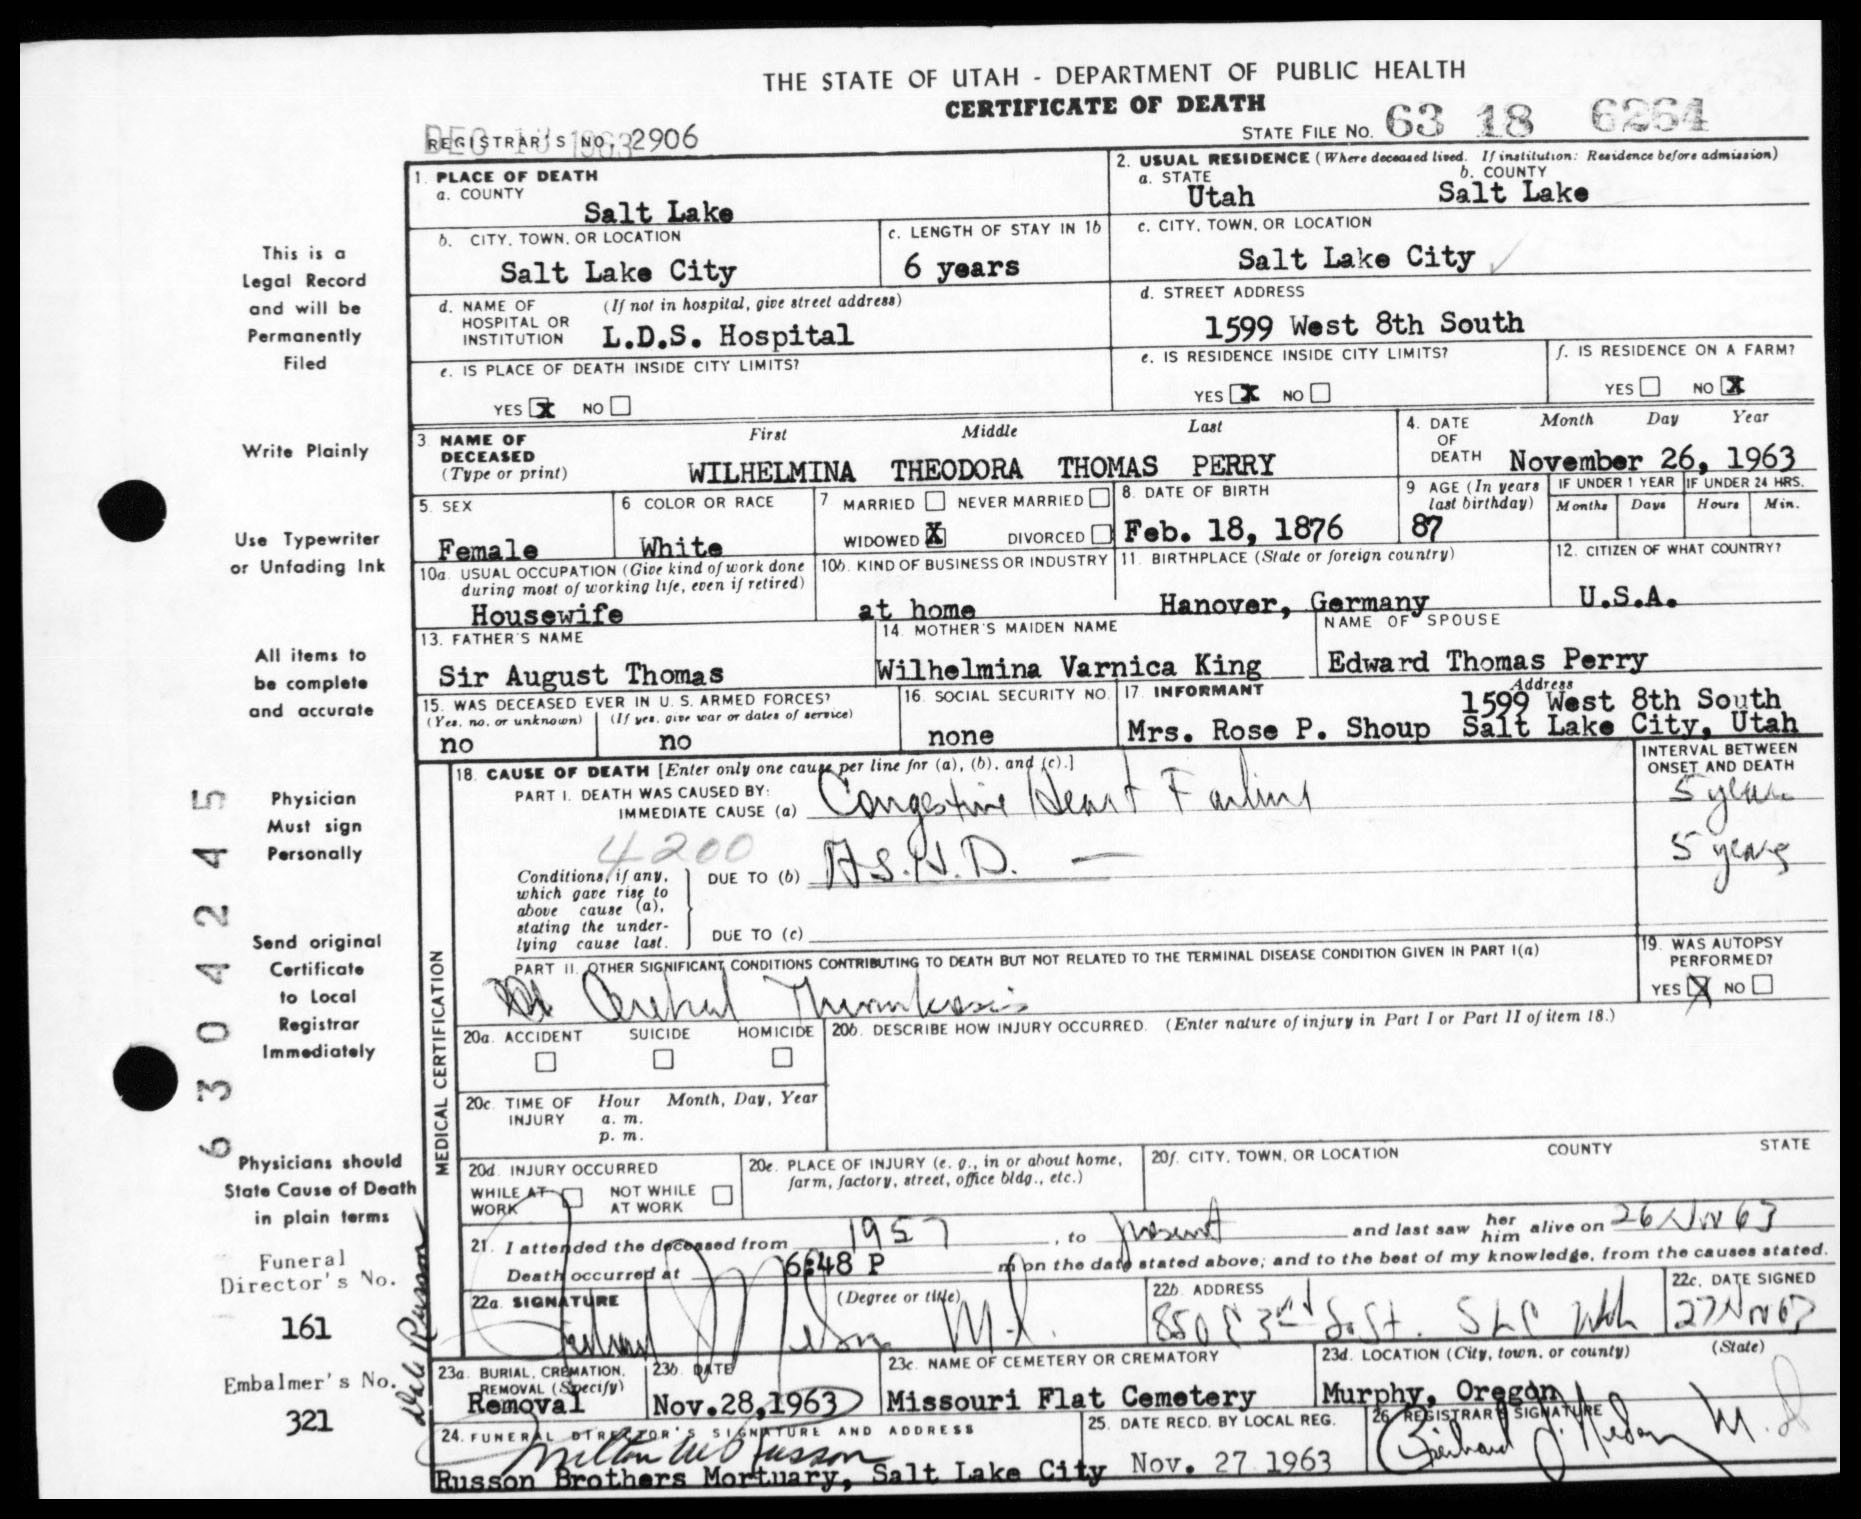 THE STATE OF UTAH - DEPARTMENT OF PUBLIC HEALTH
CERTIFICATE OF DEATH
DEC 13 1963
REGISTRAR'S NO. 2906
STATE FILE NO. 63 18 6264
1. PLACE OF DEATH
a. COUNTY
Salt Lake
2. USUAL RESIDENCE (Where deceased lived. If institution: Residence before admission)
a. STATE
Utah
b. COUNTY
Salt Lake
b. CITY, TOWN, OR LOCATION
Salt Lake City
c. LENGTH OF STAY IN 1b
6 years
c. CITY, TOWN, OR LOCATION
Salt Lake City
d. NAME OF HOSPITAL OR INSTITUTION
(If not in hospital, give street address)
L.D.S. Hospital
d. STREET ADDRESS
1599 West 8th South
e. IS PLACE OF DEATH INSIDE CITY LIMITS?
YES X NO
e. IS RESIDENCE INSIDE CITY LIMITS?
YES X NO
f. IS RESIDENCE ON A FARM?
YES NO X
3 NAME OF DECEASED
(Type or print)
First Middle Last
WILHELMINA THEODORA THOMAS PERRY
4. DATE OF DEATH
Month Day Year
November 26, 1963
5. SEX
Female
6 COLOR OR RACE
White
7 MARRIED NEVER MARRIED
WIDOWED X DIVORCED
8. DATE OF BIRTH
Feb. 18, 1876
9 AGE (In years last birthday)
87
IF UNDER 1 YEAR
Months Days
IF UNDER 24 HRS.
Hours Min.
10a. USUAL OCCUPATION (Give kind of work done during most of working life, even if retired)
Housewife
10b. KIND OF BUSINESS OR INDUSTRY
at home
11. BIRTHPLACE (State or foreign country)
Hanover, Germany
12. CITIZEN OF WHAT COUNTRY?
U.S.A.
13. FATHER'S NAME
Sir August Thomas
14. MOTHER'S MAIDEN NAME
Wilhelmina Varnica King
NAME OF SPOUSE
Edward Thomas Perry
15. WAS DECEASED EVER IN U. S. ARMED FORCES?
(Yes, no, or unknown) (If yes, give war or dates of service)
no no
16. SOCIAL SECURITY NO.
none
17. INFORMANT Address
Mrs. Rose P. Shoup
1599 West 8th South
Salt Lake City, Utah
MEDICAL CERTIFICATION
18. CAUSE OF DEATH [Enter only one cause per line for (a), (b), and (c).]
PART I. DEATH WAS CAUSED BY:
IMMEDIATE CAUSE (a) Congestive Heart Failure
INTERVAL BETWEEN ONSET AND DEATH
5 years
4200
Conditions, if any, which gave rise to above cause (a), stating the underlying cause last.
DUE TO (b) A.S.H.D. —
5 years
DUE TO (c)
PART II. OTHER SIGNIFICANT CONDITIONS CONTRIBUTING TO DEATH BUT NOT RELATED TO THE TERMINAL DISEASE CONDITION GIVEN IN PART I(a)
Cerebral Thrombosis
19. WAS AUTOPSY PERFORMED?
YES X NO
20a. ACCIDENT SUICIDE HOMICIDE
20b. DESCRIBE HOW INJURY OCCURRED. (Enter nature of injury in Part I or Part II of item 18.)
20c. TIME OF INJURY
Hour Month, Day, Year
a. m.
p. m.
20d. INJURY OCCURRED
WHILE AT WORK
NOT WHILE AT WORK
20e. PLACE OF INJURY (e. g., in or about home, farm, factory, street, office bldg., etc.)
20f. CITY, TOWN, OR LOCATION COUNTY STATE
21. I attended the deceased from 1957, to present and last saw her him alive on 26 Nov 63
Death occurred at 6:48 P m on the date stated above; and to the best of my knowledge, from the causes stated.
22a. SIGNATURE (Degree or title)
Richard J Nelson M.D.
22b. ADDRESS
850 E 3rd So. St. SLC Utah
22c. DATE SIGNED
27 Nov 63
23a. BURIAL, CREMATION, REMOVAL (Specify)
Removal
23b. DATE
Nov.28,1963
23c. NAME OF CEMETERY OR CREMATORY
Missouri Flat Cemetery
23d. LOCATION (City, town, or county) (State)
Murphy, Oregon
24. FUNERAL DIRECTOR'S SIGNATURE AND ADDRESS
Milton W Russon
Russon Brothers Mortuary, Salt Lake City
25. DATE RECD. BY LOCAL REG.
Nov. 27 1963
26 REGISTRAR'S SIGNATURE
M.D.
This is a
Legal Record
and will be
Permanently
Filed
Write Plainly
Use Typewriter
or Unfading Ink
All items to
be complete
and accurate
Physician
Must sign
Personally
Send original
Certificate
to Local
Registrar
Immediately
Physicians should
State Cause of Death
in plain terms
Funeral
Director's No.
161
Embalmer's No.
321
Dale Russon
6304245